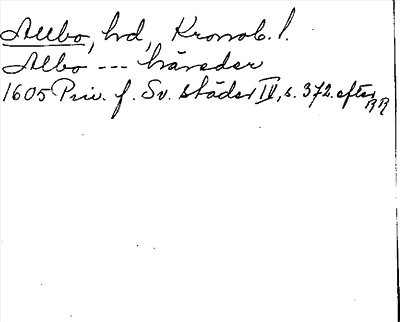 Allbo, hd, Kronob. l.
Albo --- häreder
1605 Priv. f. Sv. städer IV, s. 372. efter
RR